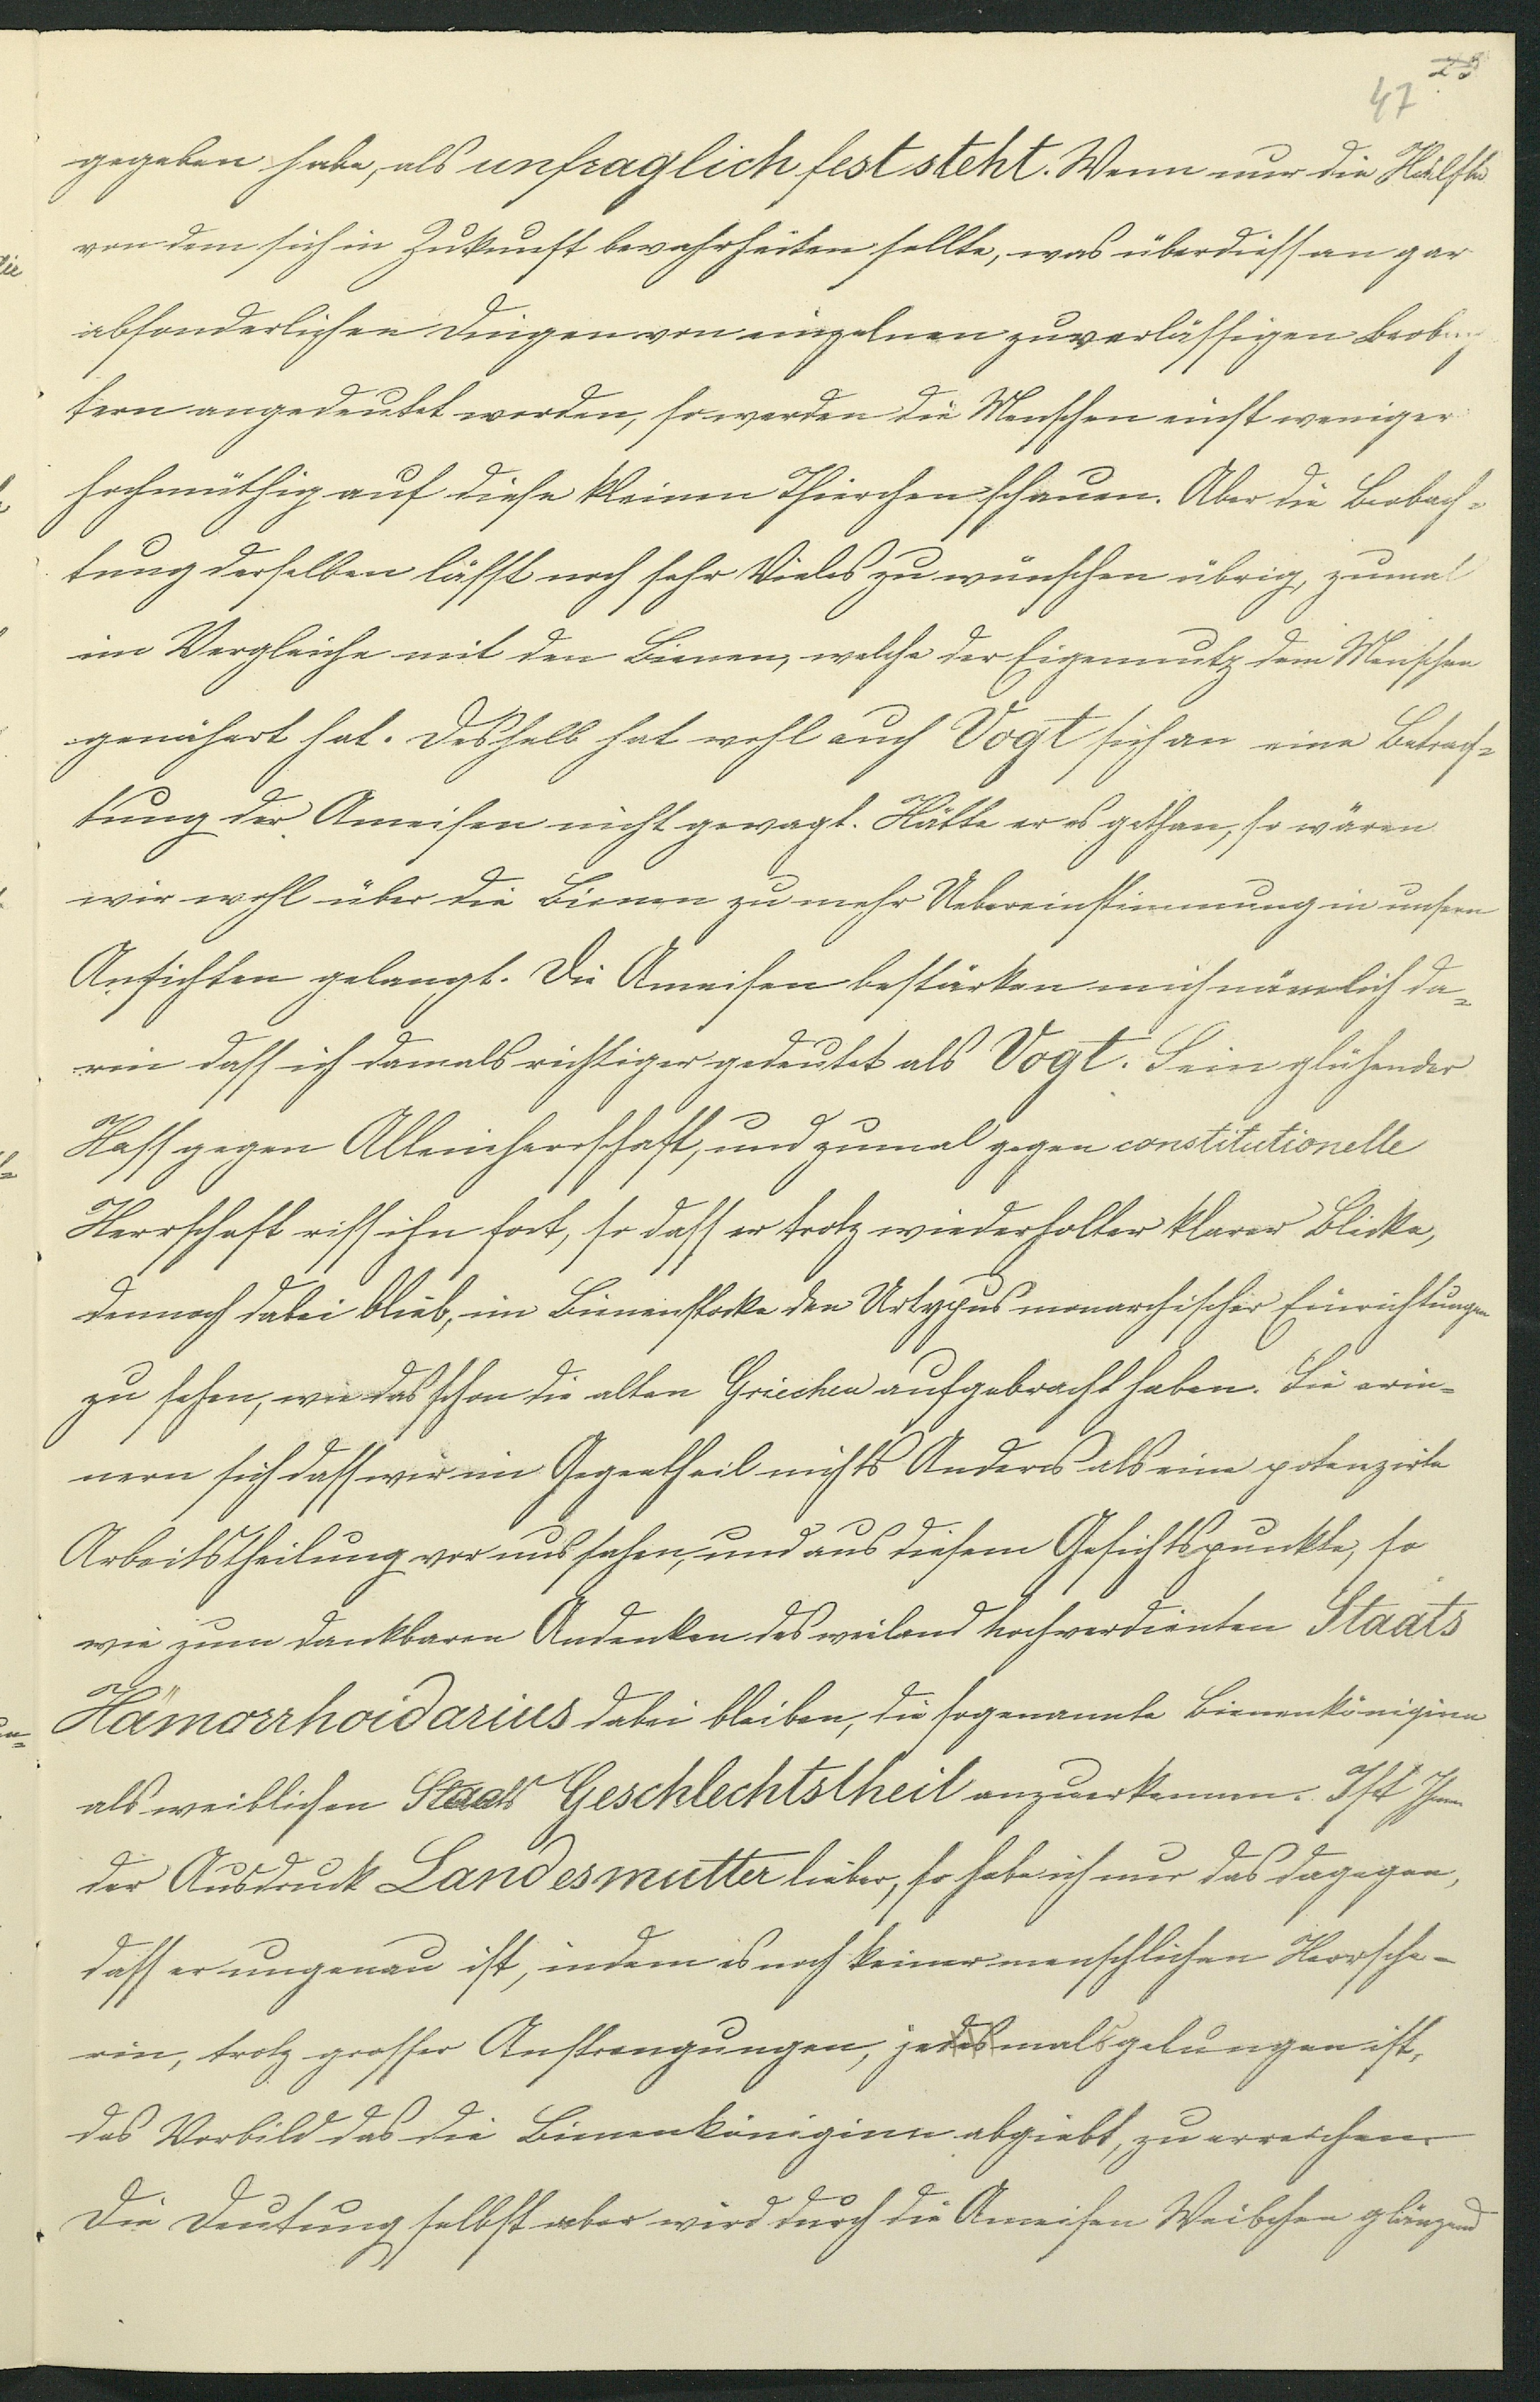 25
47
gegeben habe, als unfraglich fest steht. Wenn nur die Hälfte
von dem sich in Zukunft bewahrheiten sollte, was überdiess an gar
absonderlichen Dingen von einzelnen zuverlässigen Beobach
tern angedeutet worden, so werden die Menschen einst weniger
hochmüthig auf diese kleinen Thierchen schauen. Aber die Beobach-
tung derselben lässt noch sehr Vieles zu wünschen übrig, zumal
im Vergleiche mit den Bienen, welche der Eigennutz dem Menschen
genähert hat. Deshalb hat wohl auch Vogt sich an eine Betrach-
tung der Ameisen nicht gewagt. Hätte er es gethan, so wären
wir wohl über die Bienen zu mehr Uebereinstimmung in unsern
Ansichten gelangt. Die Ameisen bestärken mich nämlich da-
rin dass ich damals richtiger gedeutet als Vogt. Sein glühender
Hass gegen Alleinherrschaft, und zumal gegen constitutionelle
Herrschaft riss ihn fort, so dass er trotz wiederholter klarer Blicke,
dennoch dabei blieb, im Bienenstocke den Urtypus monarchischer Einrichtungen
zu sehen, wie das schon die alten Griechen aufgebracht haben. Sie erin-
nern sich dass wir im Gegentheil nichts Anderes als eine potenzirte
Arbeitstheilung vor uns sahen, und aus diesem Gesichtspunkte, so
wie zum dankbaren Andenken des weiland hochverdienten Staats
Hämorrhoidarius dabei bleiben, die sogenannte Bienenköniginn
als weiblichen Staats Geschlechtstheil anzuerkennen. Ist Ihnen
der Ausdruck Landesmutter lieber, so habe ich nur das dagegen,
dass er ungenau ist, indem es noch keiner menschlichen Herrsche-
rin, trotz grosser Anstrengungen, jemals gelungen ist,
das Vorbild das die Bienenköniginn abgiebt, zu erreichen.
Die Deutung selbst aber wird durch die Ameisen Weibchen glänzend